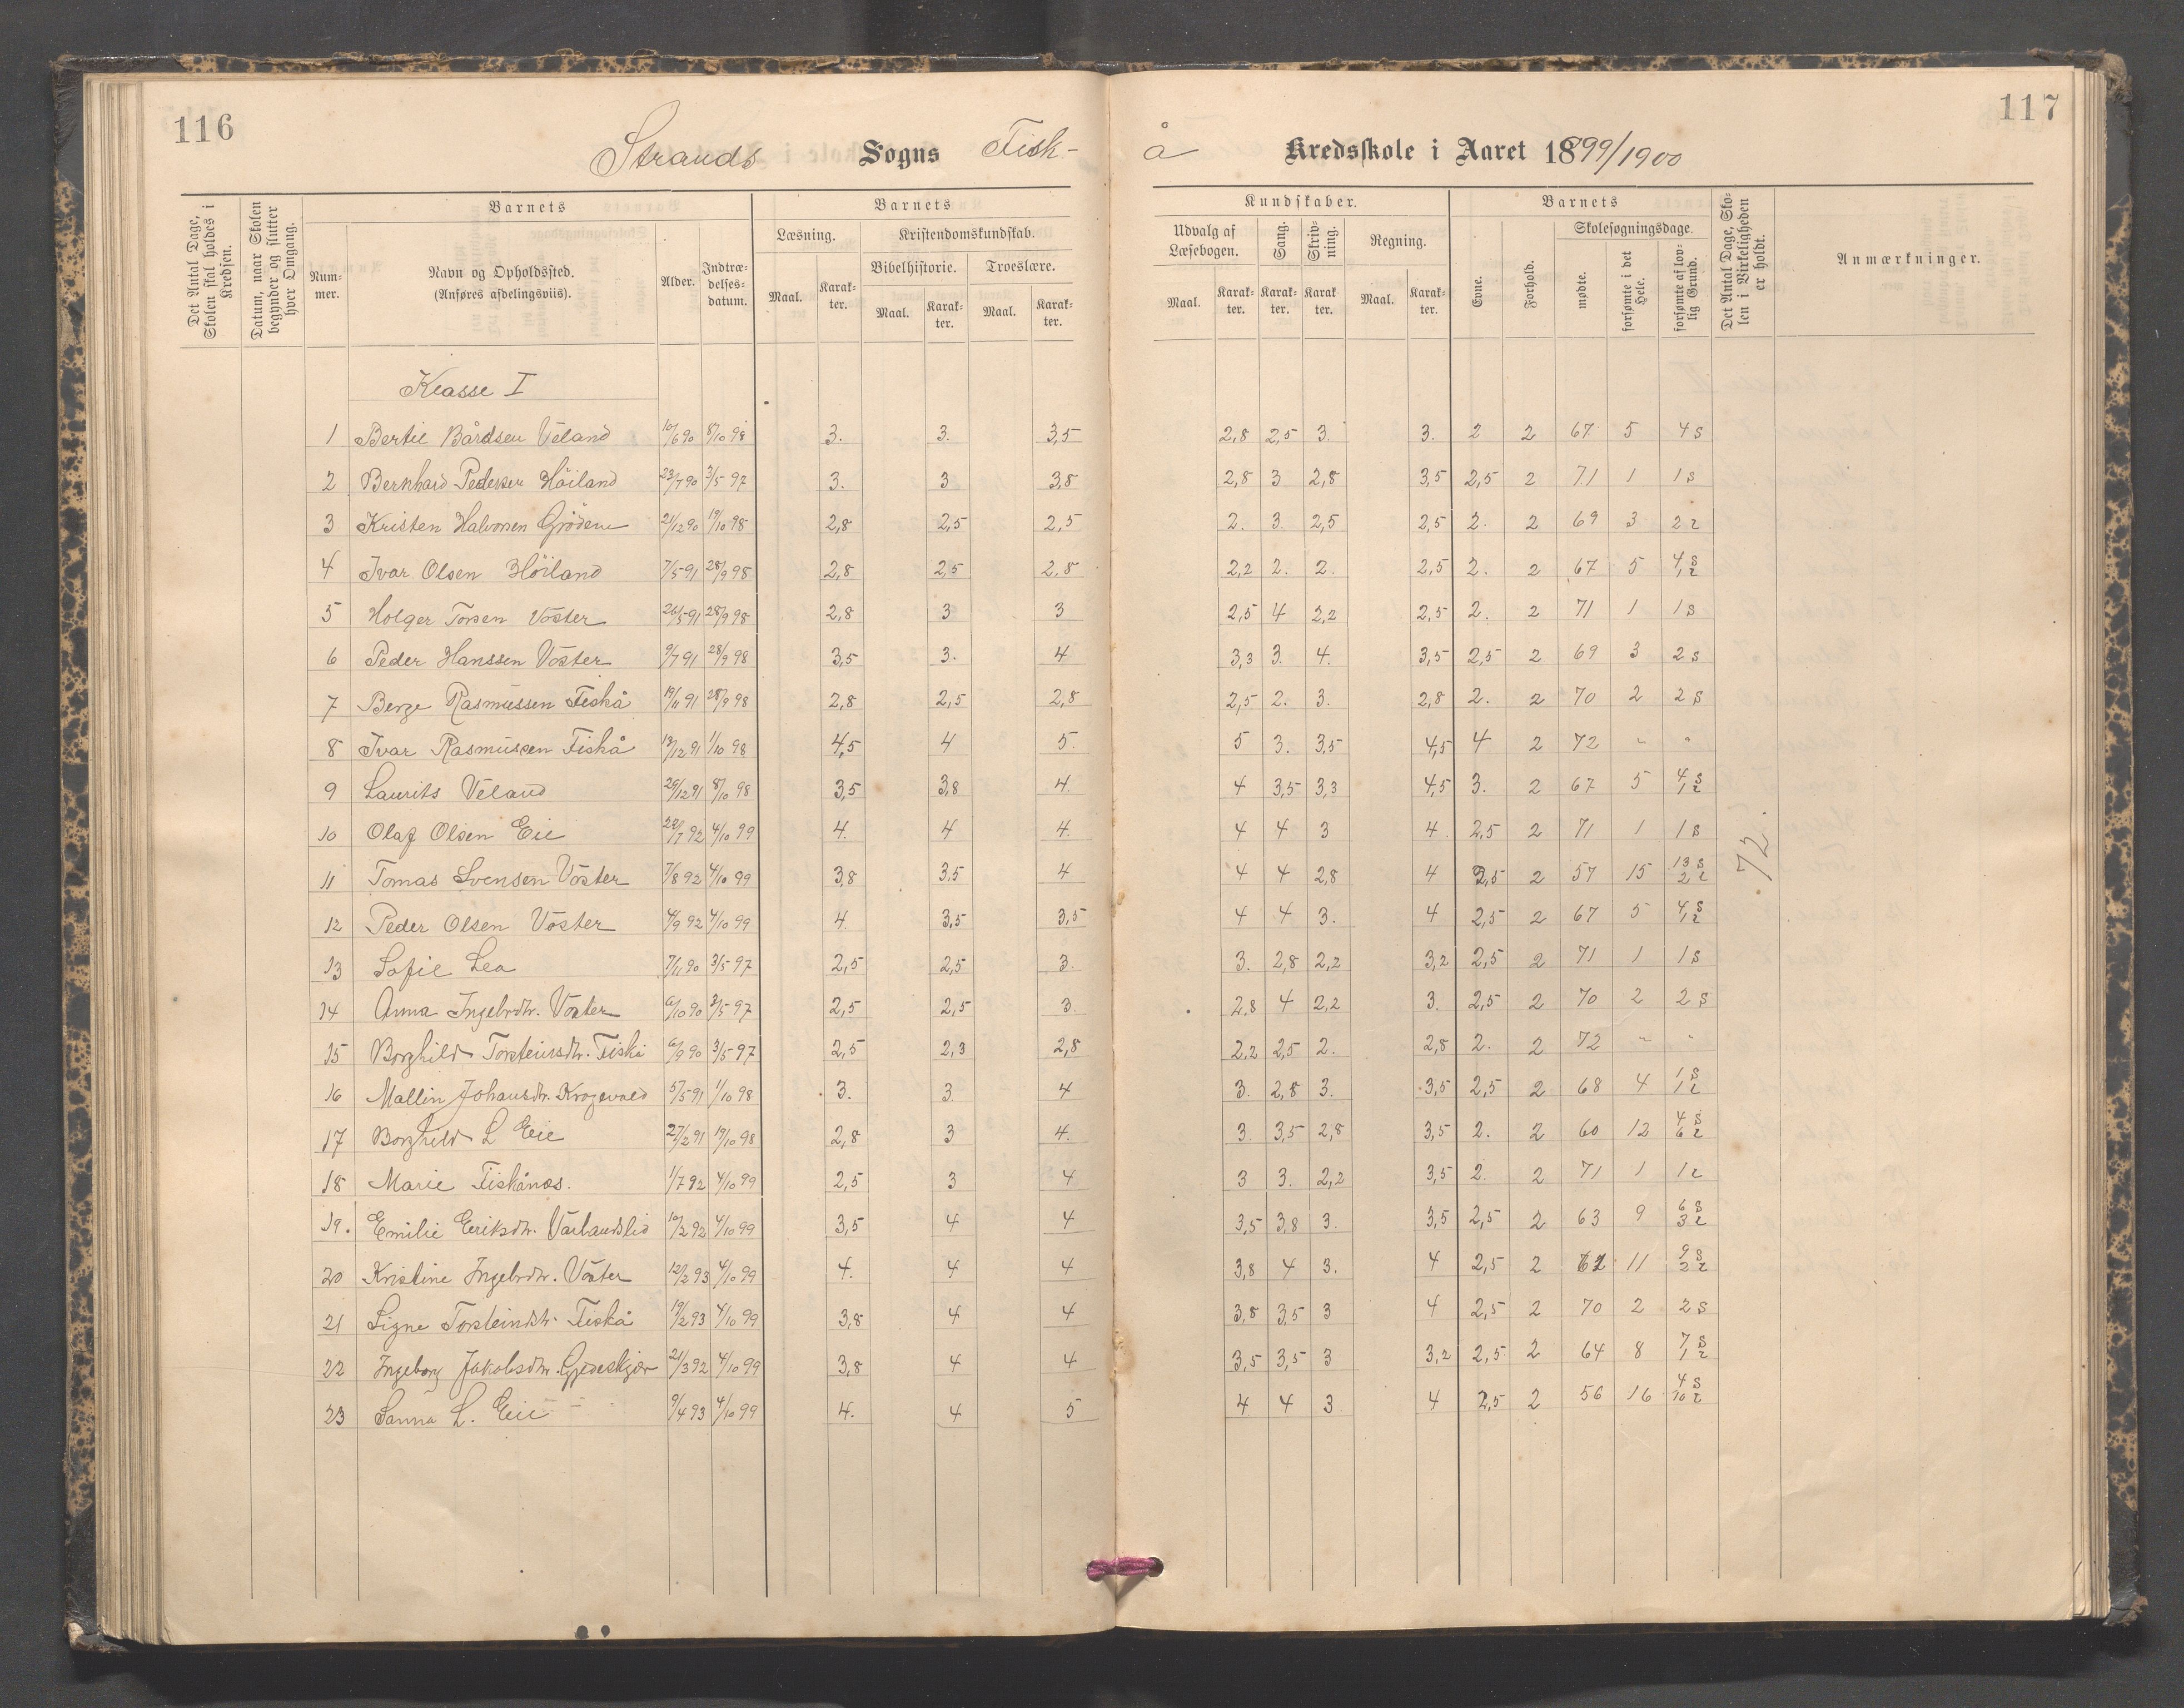 116
117
Strands Sogns Fisk-
å Kredsskole i Aaret 1899/1900
Det Antal Dage, Skolen skal holdes i Kredsen.
Datum, naar Skolen begynder og slutter hver Omgang.
Barnets
Num-mer.
Navn og Opholdssted.
(Anføres afdelingsviis).
Alder.
Indtræ-delses-datum.
Barnets
Læsning.
Maal.
Karak-ter.
Kristendomskundskab.
Bibelhistorie.
Maal.
Karak-ter.
Troeslære.
Maal.
Karak-ter.
Kundskaber.
Udvalg af Læsebogen.
Maal.
Karak-ter.
Sang.
Karak-ter.
Skriv-ning.
Karak-ter.
Regning.
Maal.
Karak-ter.
Barnets
Evne.
Forhold.
Skolesøgningsdage.
mødte.
forsømte i det Hele.
forsømte af lov-lig Grund.
Det Antal Dage, Sko-len i Virkeligheden er holdt.
Anmærkninger.
Klasse I
1 Bertil Bårdsen Veland 10/6 90 8/10 98 3. 3. 3,5 2,8 2,5 3. 3. 2 2 67 5 4 s
2 Bernhard Pedersen Höiland 23/7 90 3/5 97 3. 3 3,8 2,8 3 2,8 3,5 2,5 2 71 1 1 s
3 Kristen Halvorsen Grödem 21/12 90 19/10 98 2,8 2,5 2,5 2. 3. 2,5 2,5 2. 2 69 3 2 l
4 Ivar Olsen Höiland 7/5 91 28/9 98 2,8 2,5 2,8 2,2 2. 2. 2,5 2. 2 67 5 4 s 1 l
5 Holger Torsen Voster 26/5 91 28/9 98 2,8 3 3 2,5 4 2,2 2,5 2. 2 71 1 1 s
6 Peder Hanssen Voster 9/7 91 28/9 98 3,5 3. 4 3,3 3. 4. 3,5 2,5 2 69 3 2 s
7 Berge Rasmussen Fiskå 19/11 91 28/9 98 2,8 2,5 2,8 2,5 2. 3. 2,8 2. 2 70 2 2 s
8 Ivar Rasmussen Fiskå 13/12 91 1/10 98 4,5 4 5. 5 3. 3,5 4,5 4 2 72 " "
9 Laurits Veland 29/12 91 8/10 98 3,5 3,8 4. 4 3,5 3,3 4,5 3. 2 67 5 4 s 1 l
10 Olaf Olsen Eie 28/7 92 4/10 99 4. 4 4. 4 4 3 4. 2,5 2 71 1 1 s
11 Tomas Svensen Voster 7/8 92 4/10 99 3,8 3,5 4 4 4 2,8 4 2,5 2 57 15 13 s 2 l
72.
12 Peder Olsen Voster 4/9 92 4/10 99 4. 3,5 3,5 4 4 3. 4 2,5 2 67 5 4 s 1 l
13 Sofie Lea 7/11 90 3/5 97 2,5 2,5 3. 3. 2,8 2,2 3,2 2,5 2 71 1 1 s
14 Anna Ingebrdtr. Voster 6/10 90 3/5 97 2,5 2,5 3. 2,8 4 2,2 3. 2,5 2 70 2 2 s
15 Borghild Torsteinsdtr. Fiskå 6/9 90 3/5 97 2,5 2,3 2,8 2,2 2,5 2. 2,8 2. 2 72 " "
16 Mallin Johansdtr. Krogevold 5/5 91 1/10 98 3. 3. 4 3. 2,8 3. 3,5 2,5 2 68 4 1 s 1 l
17 Borghild L Eie 27/2 91 19/10 98 2,8 3 4. 3. 3,5 2,8 3,5 2. 2 60 12 4 s 6 l
18 Marie Fiskånes. 1/7 92 4/10 99 2,5 3 4 3 3. 2,2 3,5 2. 2 71 1 1 l
19. Emilie Eriksdtr. Varlandslid 10/2 92 4/10 99 3,5 4 4 3,5 3,8 3. 3,5 2,5 2 63 9 6 s 3 l
20 Kristine Ingebrdtr. Voster 12/2 93 4/10 99 4. 4 4 3,8 4 3. 4 2,5 2 61 11 9 s 2 l
21 Signe Torsteindtr. Fiskå 19/2 93 4/10 99 3,8 4 4 3,8 3,5 3 4 2,5 2 70 2 2 s
22 Ingeborg Jakobsdtr. Gjeveskjær 21/3 92 4/10 99 3,8 4 4 3,5 3,5 3 3,2 2,5 2 64 8 7 s 1 l
23 Sanna L. Eie 9/4 93 4/10 99 4. 4 5 4 4 3. 4 2,5 2 56 16 4 s 10 l